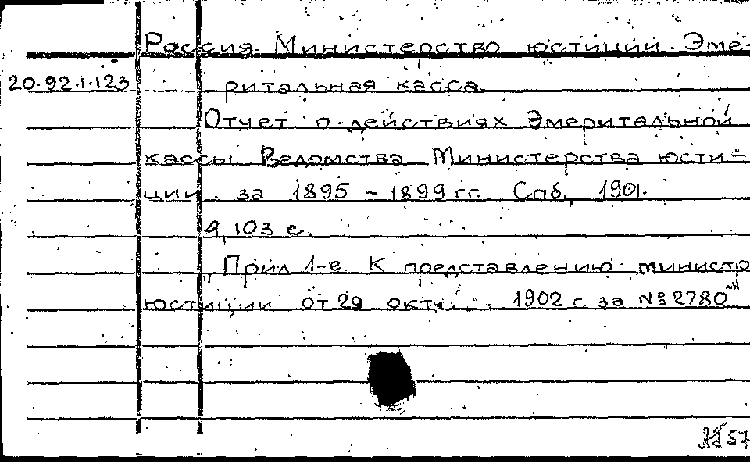 Россия. Министерство юстиции. Эме-
20.92.1.123 ритальная касса.
Отчет о действиях Эмеритальной
кассы Ведомства Министерства юсти-
ции за 1895 – 1899 гг. Спб, 1901.
103 с.
Прил 1-е К представлению министра
юстиции от 29 окт. 1902 г. за № 2780
57